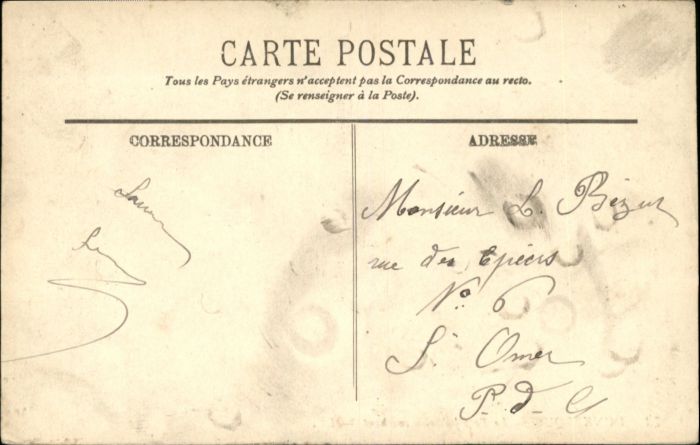 CARTE POSTALE
Tous les Pays étrangers n'acceptent pas la Correspondance au recto.
(Se renseigner à la Poste).
CORRESPONDANCE
ADRESSE
Monsieur L.
rue des Epéers
No 6
St Omer
P-d-C